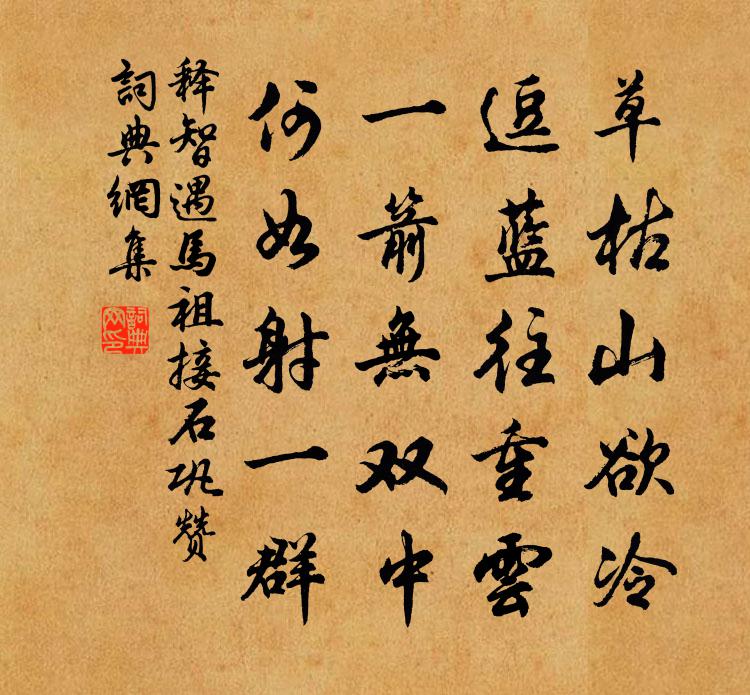 草枯山欲冷
逗蓝往重雲
一箭無双中
何如射一群
释智遇馬祖接石巩赞
詞典網集
詞典網印